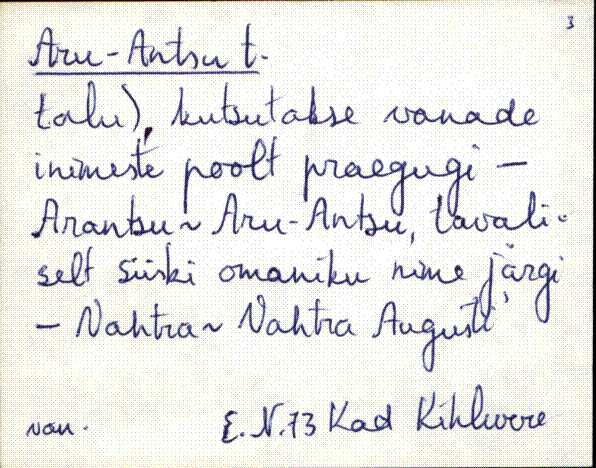 3
Aru-Antsu t.
talu), kutsutakse vanade
inimeste poolt praegugi –
Arantsu ~ Aru-Antsu, tavali-
selt siiski omaniku nime järgi
– Vahtra ~ Vahtra Augusti
van. E. N. 73 Kad Kihlvere